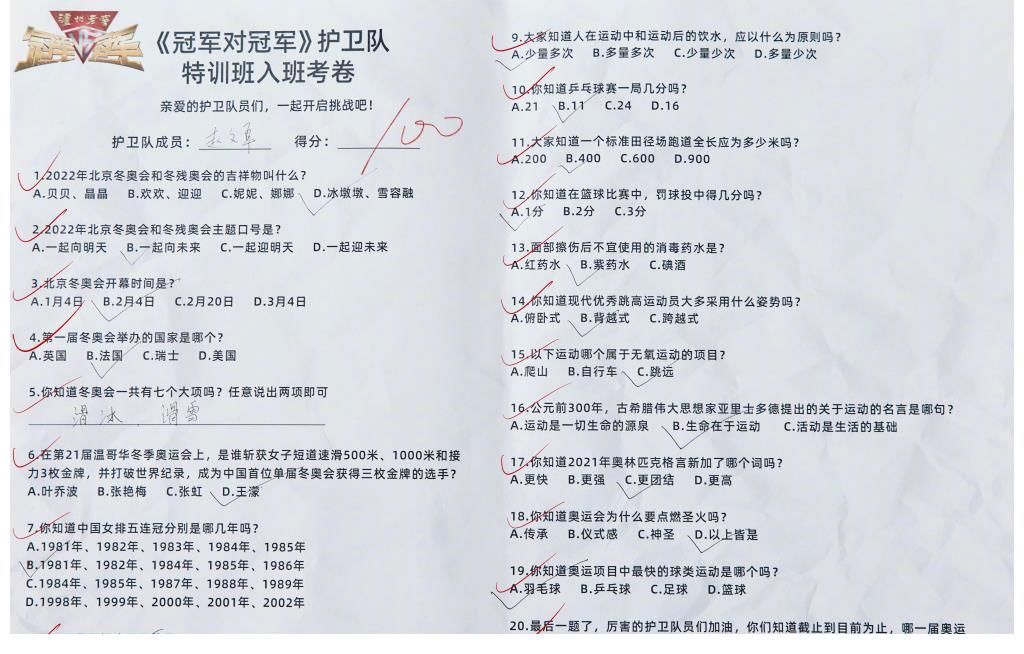 泸州老窖
冠军对冠军
《冠军对冠军》护卫队
特训班入班考卷
亲爱的护卫队员们，一起开启挑战吧！
护卫队成员： 得分： 100
1.2022年北京冬奥会和冬残奥会的吉祥物叫什么？
A.贝贝、晶晶 B.欢欢、迎迎 C.妮妮、娜娜 D.冰墩墩、雪容融
2.2022年北京冬奥会和冬残奥会主题口号是？
A.一起向明天 B.一起向未来 C.一起迎明天 D.一起迎未来
3.北京冬奥会开幕时间是？
A.1月4日 B.2月4日 C.2月20日 D.3月4日
4.第一届冬奥会举办的国家是哪个？
A.英国 B.法国 C.瑞士 D.美国
5.你知道冬奥会一共有七个大项吗？任意说出两项即可
滑冰、滑雪
6.在第21届温哥华冬季奥运会上，是谁斩获女子短道速滑500米、1000米和接
力3枚金牌，并打破世界纪录，成为中国首位单届冬奥会获得三枚金牌的选手？
A.叶乔波 B.张艳梅 C.张虹 D.王濛
7.你知道中国女排五连冠分别是哪几年吗？
A.1981年、1982年、1983年、1984年、1985年
B.1981年、1982年、1984年、1985年、1986年
C.1984年、1985年、1987年、1988年、1989年
D.1998年、1999年、2000年、2001年、2002年
9.大家知道人在运动中和运动后的饮水，应以什么为原则吗？
A.少量多次 B.多量多次 C.少量少次 D.多量少次
10.你知道乒乓球赛一局几分吗？
A.21 B.11 C.24 D.16
11.大家知道一个标准田径场跑道全长应为多少米吗？
A.200 B.400 C.600 D.900
12.你知道在篮球比赛中，罚球投中得几分吗？
A.1分 B.2分 C.3分
13.面部擦伤后不宜使用的消毒药水是？
A.红药水 B.紫药水 C.碘酒
14.你知道现代优秀跳高运动员大多采用什么姿势吗？
A.俯卧式 B.背越式 C.跨越式
15.以下运动哪个属于无氧运动的项目？
A.爬山 B.自行车 C.跳远
16.公元前300年，古希腊伟大思想家亚里士多德提出的关于运动的名言是哪句？
A.运动是一切生命的源泉 B.生命在于运动 C.活动是生活的基础
17.你知道2021年奥林匹克格言新加了哪个词吗？
A.更快 B.更强 C.更团结 D.更高
18.你知道奥运会为什么要点燃圣火吗？
A.传承 B.仪式感 C.神圣 D.以上皆是
19.你知道奥运项目中最快的球类运动是哪个吗？
A.羽毛球 B.乒乓球 C.足球 D.篮球
20.最后一题了，厉害的护卫队员们加油，你们知道截止到目前为止，哪一届奥运